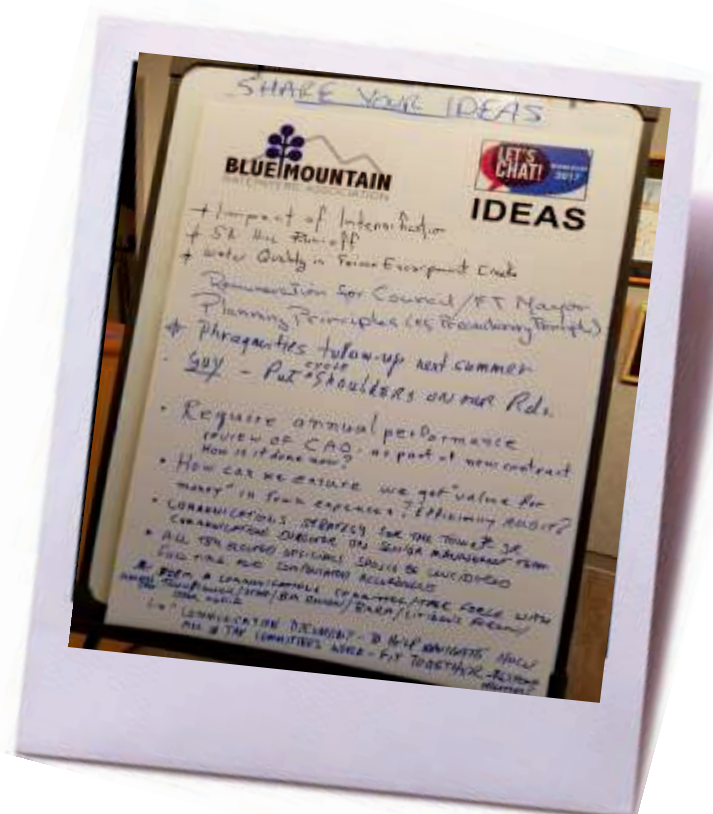 SHARE YOUR IDEAS
BLUE MOUNTAIN
RATEPAYERS ASSOCIATION
LET'S
CHAT!
2017
IDEAS
+ Impact of Intensification
+ Runoff
+ Water Quality in Escarpment Creeks
Remuneration for Council/FT Mayor
Planning Principles (eg Precautionary Principle)
Phragmities follow-up next summer
cycle
· GUY - Put SHOULDERS ON OUR Rds.
• Require annual performance
review of CAO, as part of new contract
How is it done now?
• How can we ensure we get "value for
money" in Town expenses? Efficiency AUDIT?
• COMMUNICATIONS STRATEGY FOR THE TOWN
COMMUNICATIONS DIRECTOR ON SENIOR MANAGEMENT TEAM
• ALL ELECTED OFFICIALS SHOULD BE CONSIDERED
FULL TIME AND COMPENSATED ACCORDINGLY
FORM A COMMUNICATIONS COMMITTEE/TASK FORCE WITH
COMMUNICATION DOCUMENT - TO HELP NAVIGATE HOW
ALL THE COMMITTEES WORK - FIT TOGETHER